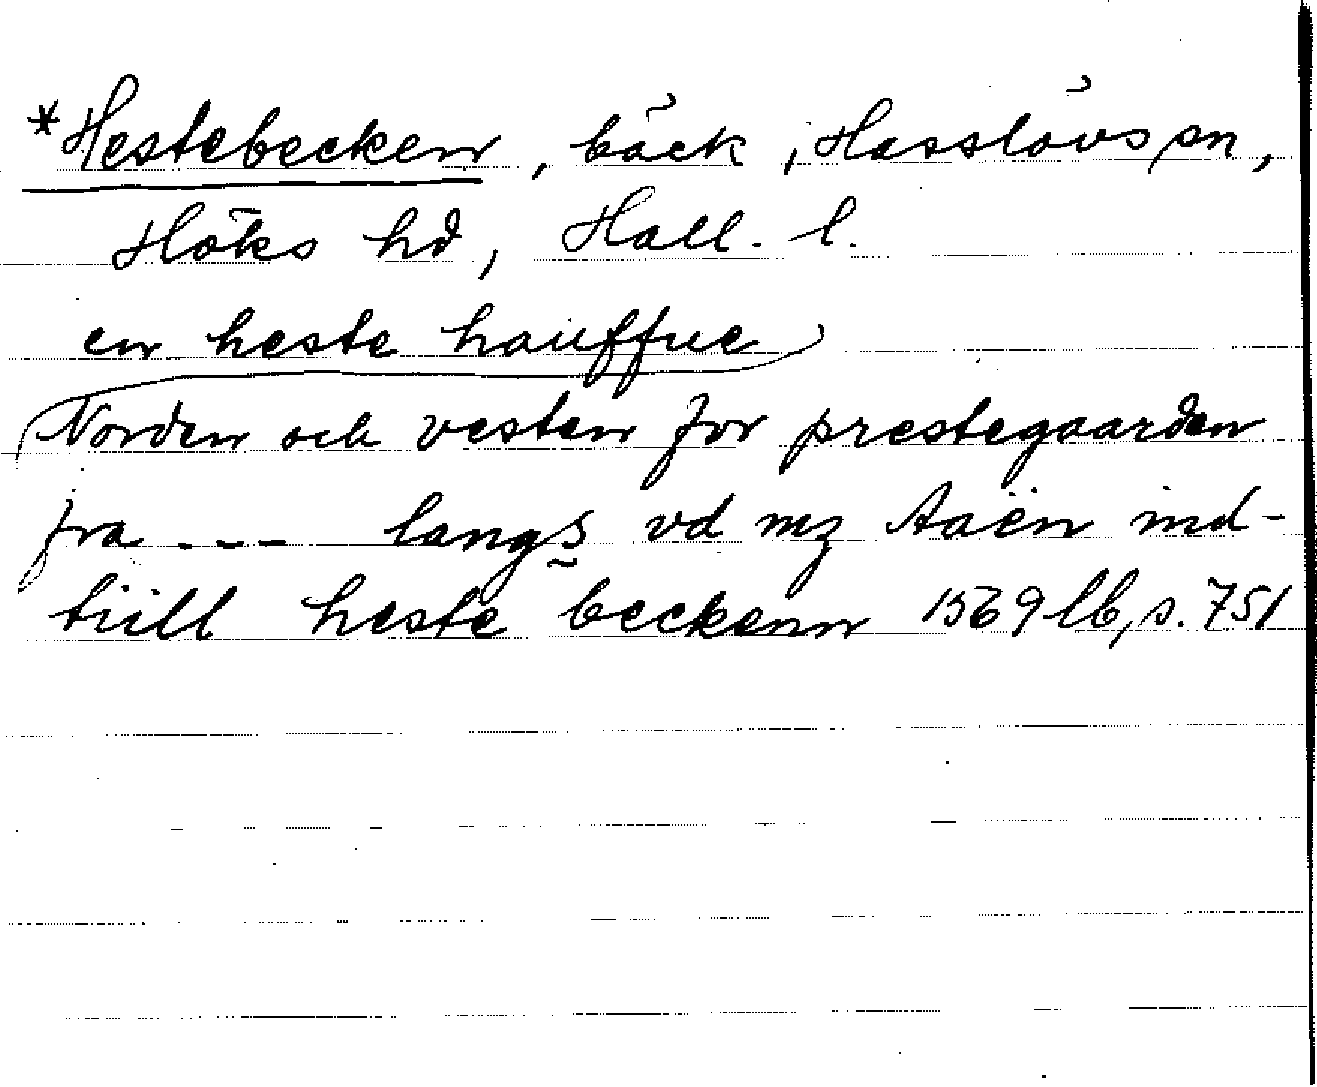 *Hestebecken, bäck, Hasslövs sn,
Höks hd, Hall. l.
en heste hauffue
Norden och vesten for prestegaarden
fra --- langs vd mz Aaën ind-
tiill heste beckenn 1569 lb, s. 751